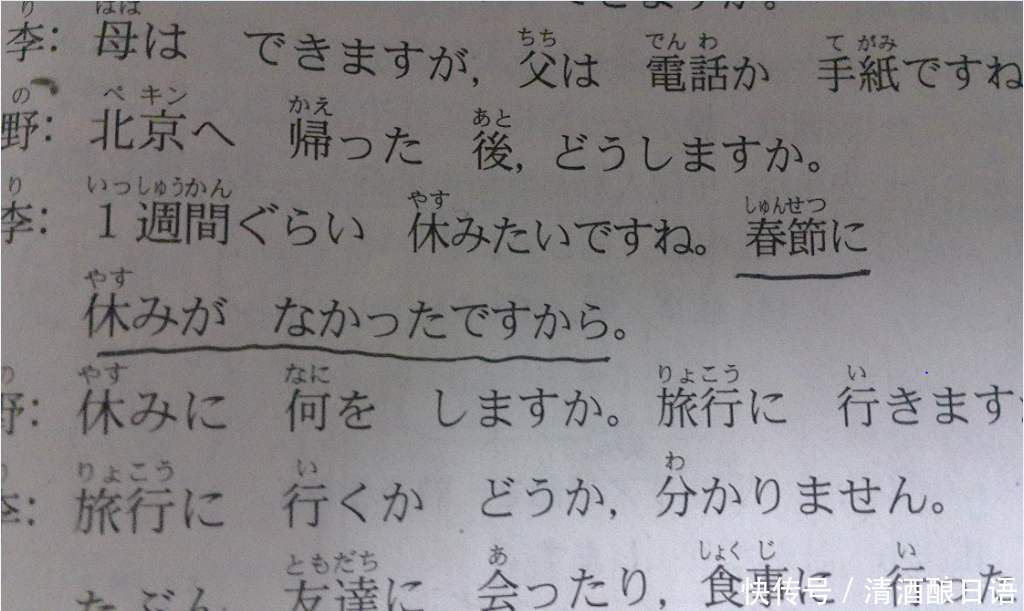 李: 母は できますが, 父は 電話か 手紙ですね
野: 北京へ 帰った 後, どうしますか。
李: 1週間ぐらい 休みたいですね。春節に
休みが なかったですから。
野: 休みに 何を しますか。旅行に 行きます
李: 旅行に 行くか どうか, 分かりません。
たぶん 友達に 会ったり, 食事に 行った
快传号 / 清酒酿日语